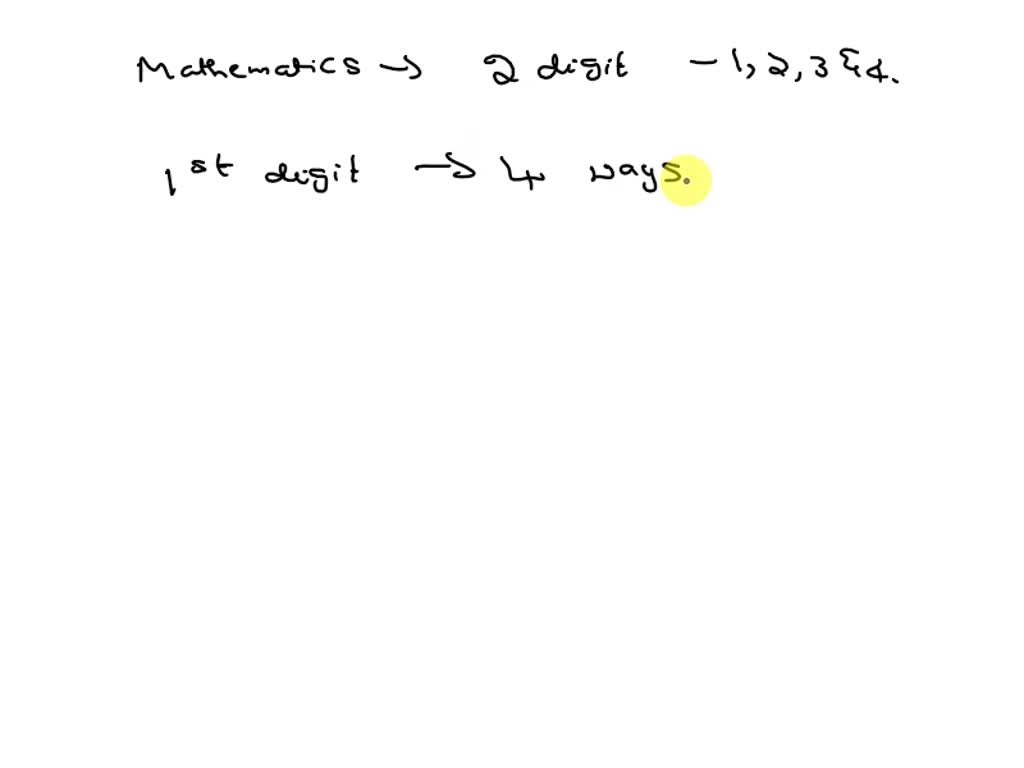 Mathematics → 2 digit - 1, 2, 3 & 4.
1st digit → 4 ways.